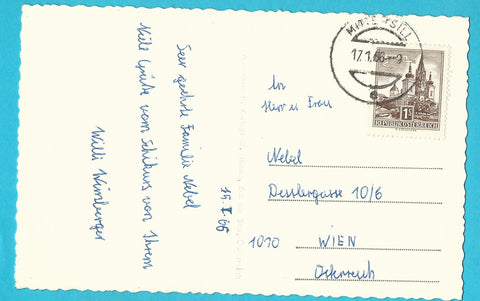 15. I. 66
Sehr geehrte Familie Nebel
Viele Grüße vom Schikurs von Ihrem
Willi
An
Herr u. Frau
Nebel
10/6
1010 WIEN
Österreich
MITTERSILL
17.1.66-9
1S
REPUBLIK ÖSTERREICH